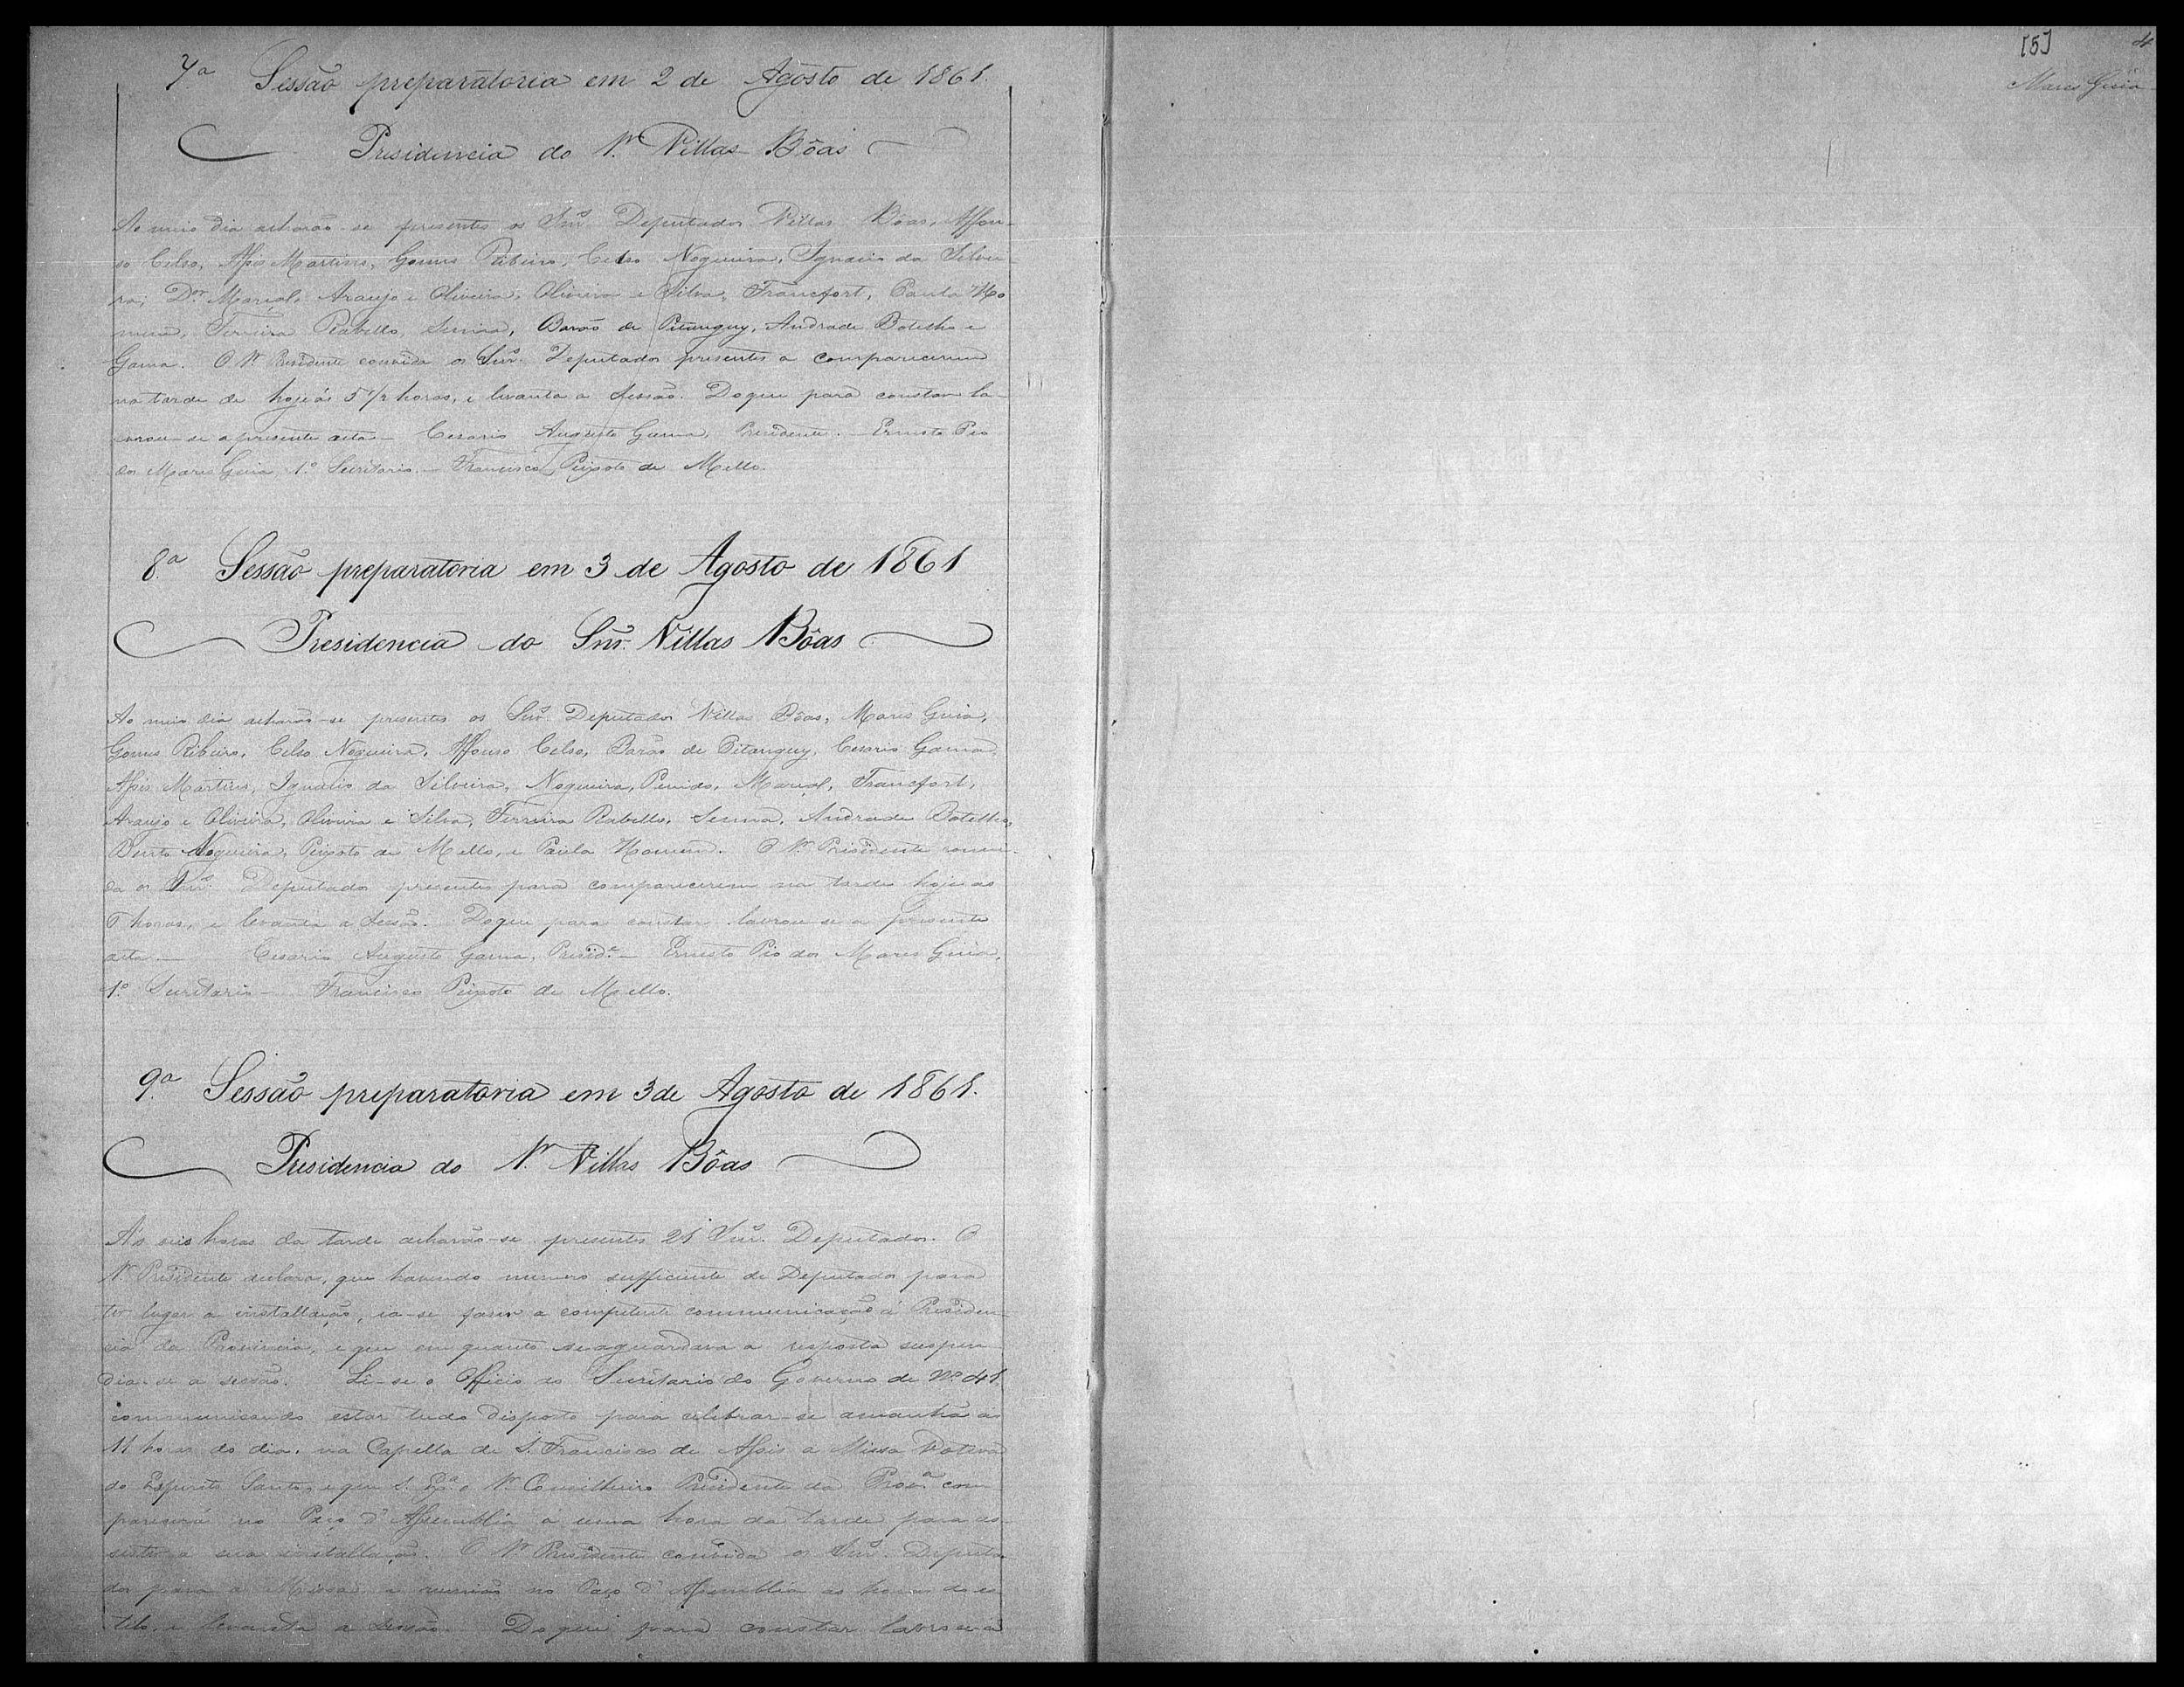 7.ª Sessão preparatoria em 2 de Agosto de 1861.
Presidencia do S.r Villas Bôas
Ao meio dia acharão-se presentes os Snr.s Deputados Villas Bôas, Affon-
so Celso, Assis Martins, Gomes Ribeiro, Celso Nogueira, Ignacio da Silvei-
ra, D.or Marçal, Araujo e Oliveira, Oliveira e Silva, Francfort, Paula Ho
mem, Ferreira Rabello, Senna, Barão de Pitanguy, Andrade Botelho e
Gama. O S.r Presidente convida os Snr.s Deputados presentes a comparecerem
na tarde de hoje ás 5 1/2 horas, e levanta a sessão. Do que para constar la-
vrou-se a presente acta – Cesario Augusto Gama, Presidente. Ernesto Pio
dos Mares Guia, 1.º Secretario. – Francisco Peixoto de Mello.
8.ª Sessão preparatoria em 3 de Agosto de 1861
Presidencia do Snr. Villas Bôas
Ao meio dia acharão-se presentes os Snr.s Deputados Villas Bôas, Mares Guia,
Gomes Ribeiro, Celso Nogueira, Affonso Celso, Barão de Pitanguy, Cesario Gama,
Assis Martins, Ignacio da Silveira, Nogueira, Penido, Marçal, Francfort,
Araujo e Oliveira, Oliveira e Silva, Ferreira Rabello, Senna, Andrade Botelho,
Bento Nogueira, Peixoto de Mello, e Paula Homem. O S.r Presidente convi-
da os Snr.s Deputados presentes para comparecerem na tarde hoje as
6 horas, e levanta a sessão. Do que para constar lavrou-se a presente
acta. – Cesario Augusto Gama, Presid.e – Ernesto Pio dos Mares Guia,
1.º Secretario – Francisco Peixoto de Mello.
9.ª Sessão preparatoria em 3 de Agosto de 1861.
Presidencia do S.r Villas Bôas
Ás seis horas da tarde acharão-se presentes 21 Snr.s Deputados. O
S.r Presidente declara, que havendo numero sufficiente de Deputados para
ter lugar a installação, ia-se faser a competente communicação á Presiden-
cia da Provincia, e que em quanto se aguardava a resposta suspen-
dia-se a sessão. Lê-se o Officio do Secretario do Governo de N.º 41
communicando estar tudo disposto para celebrar-se amanhã as
11 horas do dia, na Capella de S. Francisco de Assis a Missa Votiva
do Espirito Santo, e que S. Ex.ª o S.r Conselheiro Presidente da Prov.ª com
parecerá no Paço d'Assembléa á uma hora da tarde para as-
sistir a sua installação. O S.r Presidente convida os Snr.s Deputa
dos para a Missa, e reunião no Paço d'Assembléa as horas do es
tilo, e levanta a sessão. Do que para constar lavrou-se a
[5]
4
Mares Guia